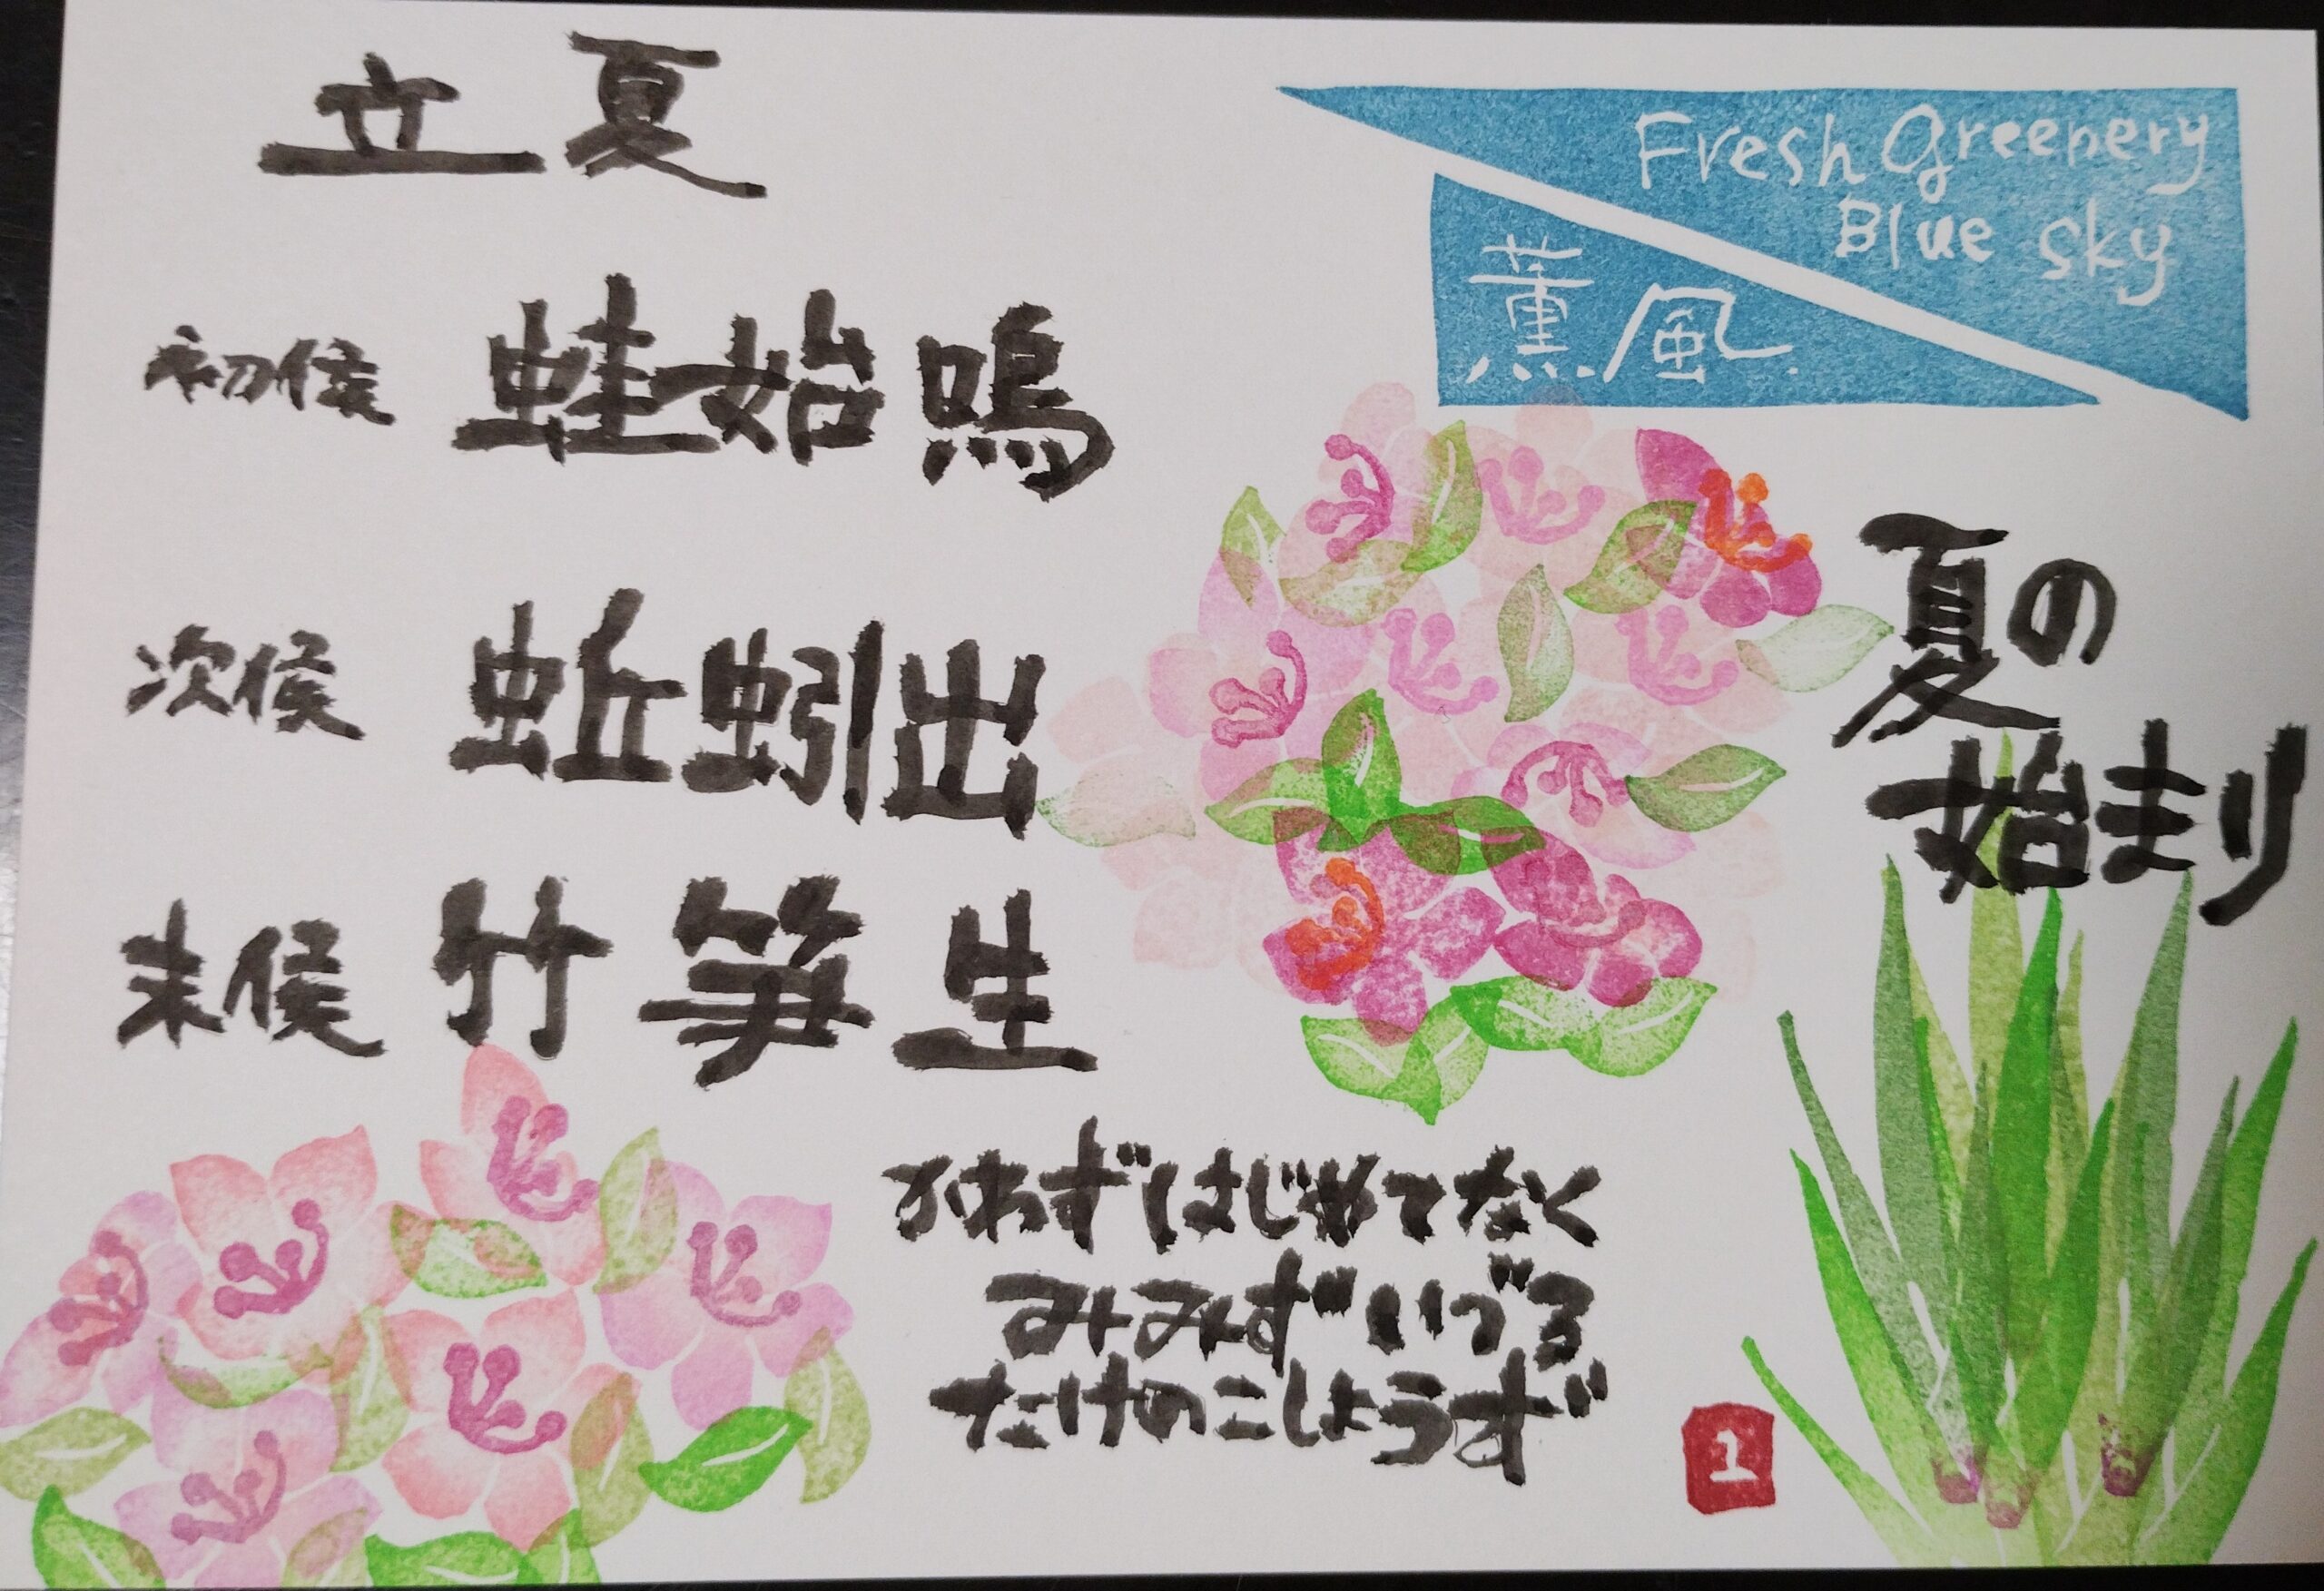 立夏
初候 蛙始鳴
次候 蚯蚓出
末候 竹笋生
Fresh Greenery
Blue sky
薫風
夏の
始まり
かわずはじめてなく
みみずいづる
たけのこしょうず
1